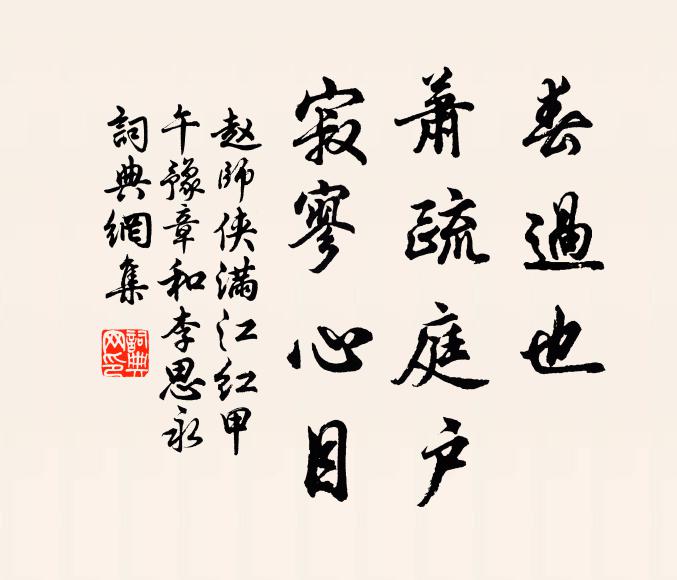 春過也
蕭疏庭户
寂寥心目
赵師侠满江红甲
午豫章和李思永
詞典網集
詞典網印